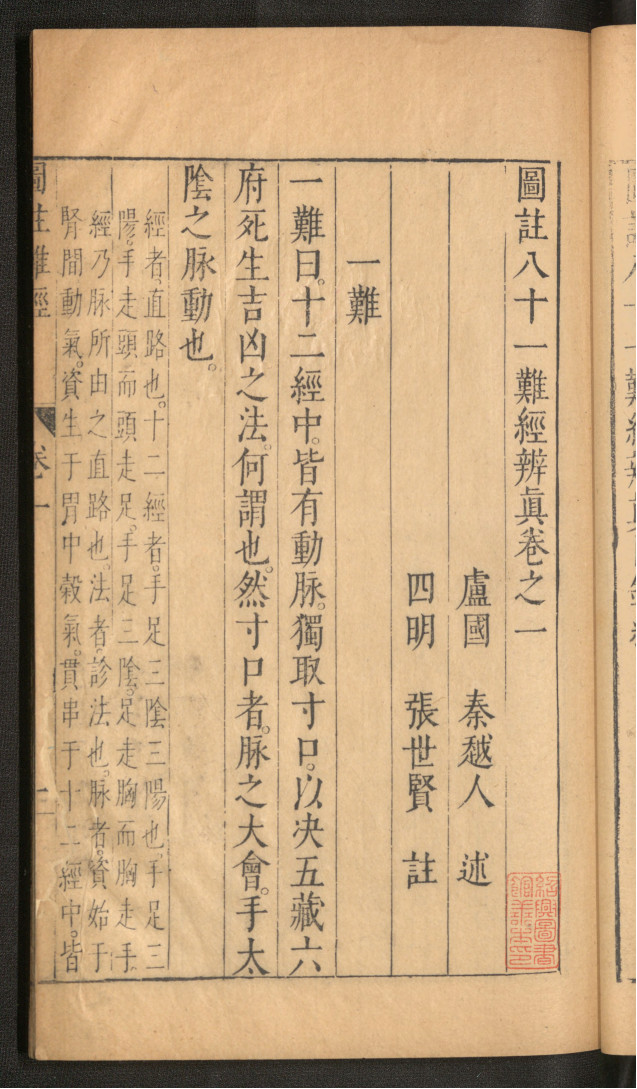 圖註八十一難經辨眞卷之一
盧國 秦越人 述
四明 張世賢 註
一難
一難曰。十二經中。皆有動脉。獨取寸口。以决五藏六
府死生吉凶之法。何謂也。然寸口者。脉之大會。手太
陰之脉動也。
經者。直路也。十二經者。手足三陰三陽也。手足三
陽。手走頭而頭走足。手足三陰。足走胸而胸走手
經乃脉所由之直路也。法者。診法也。脉者。資始于
腎間動氣。資生于胃中穀氣。貫串于十二經中。皆
圖註難經 卷一 二
紹興圖書館善本印